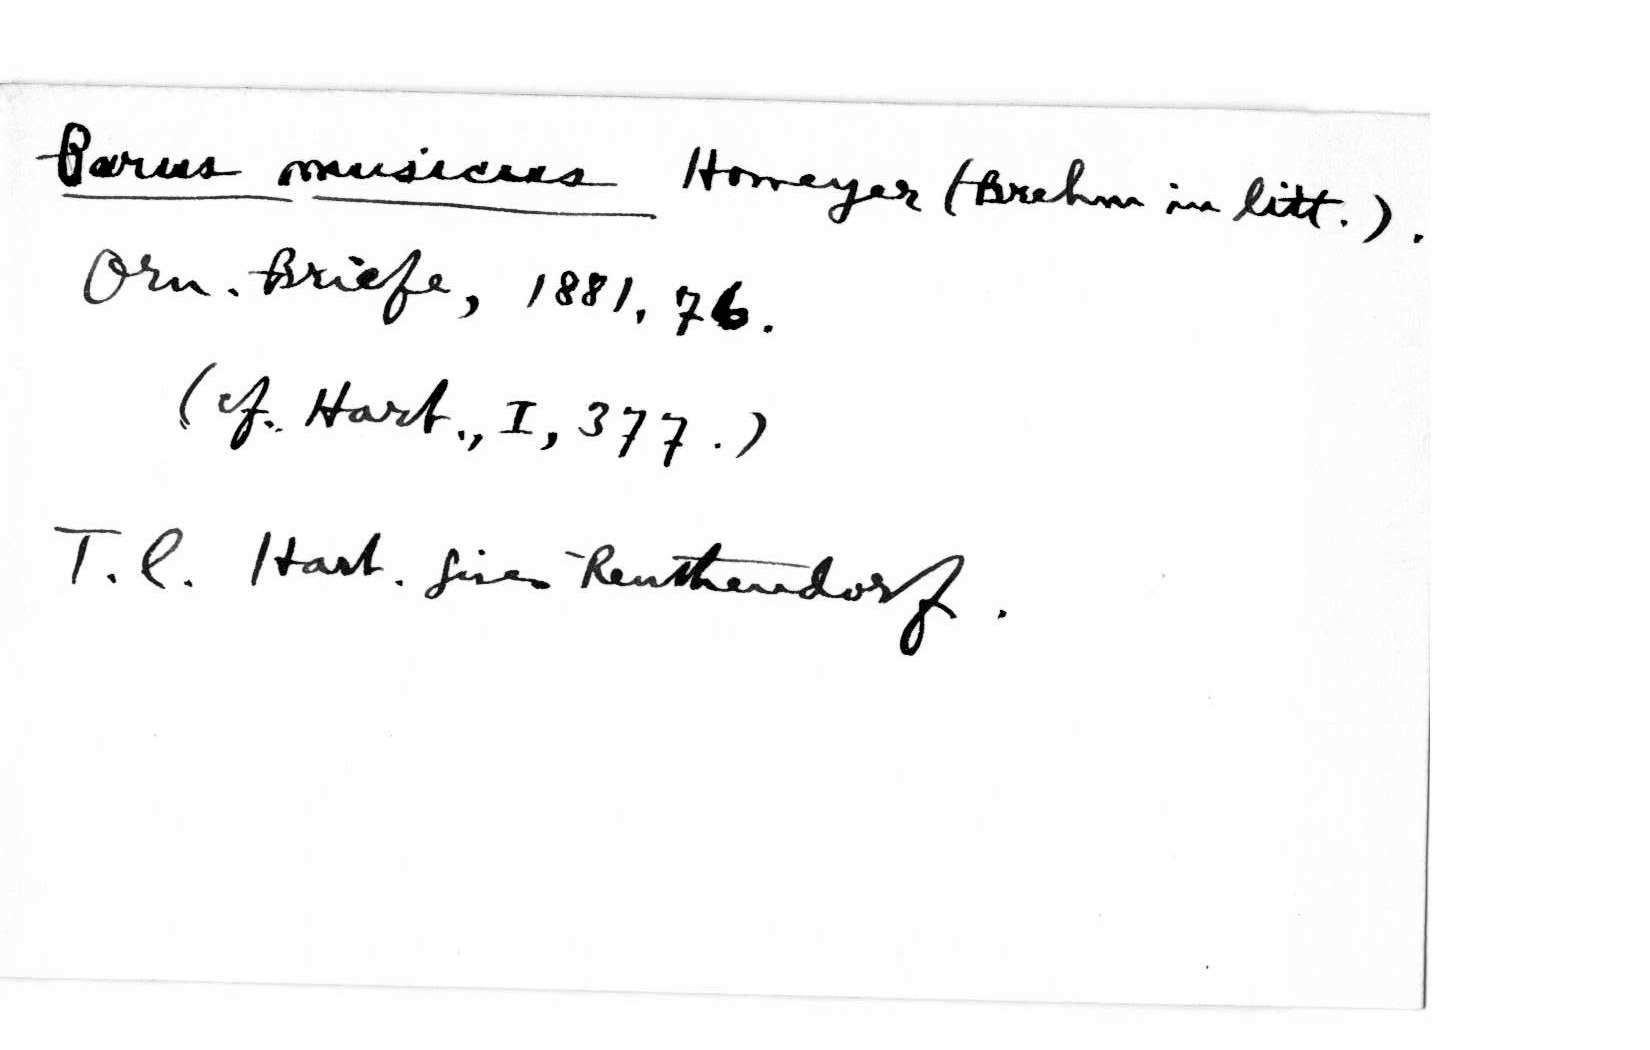 Parus musicus Homeyer (Brehm in litt.).
Orn. Briefe, 1881, 76.
(cf. Hart., I, 377.)
T.l. Hart. gives Renthendorf.